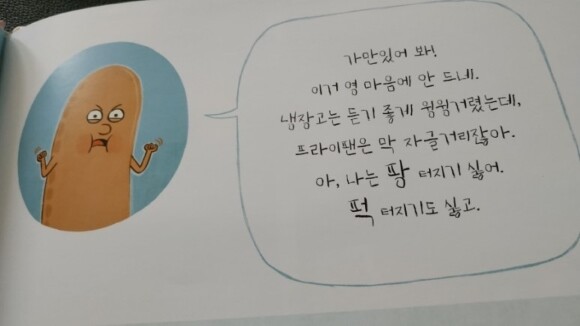 가만있어 봐!
이거 영 마음에 안 드네.
냉장고는 듣기 좋게 윙윙거렸는데,
프라이팬은 막 자글거리잖아.
아, 나는 팡 터지기 싫어.
퍽 터지기도 싫고.